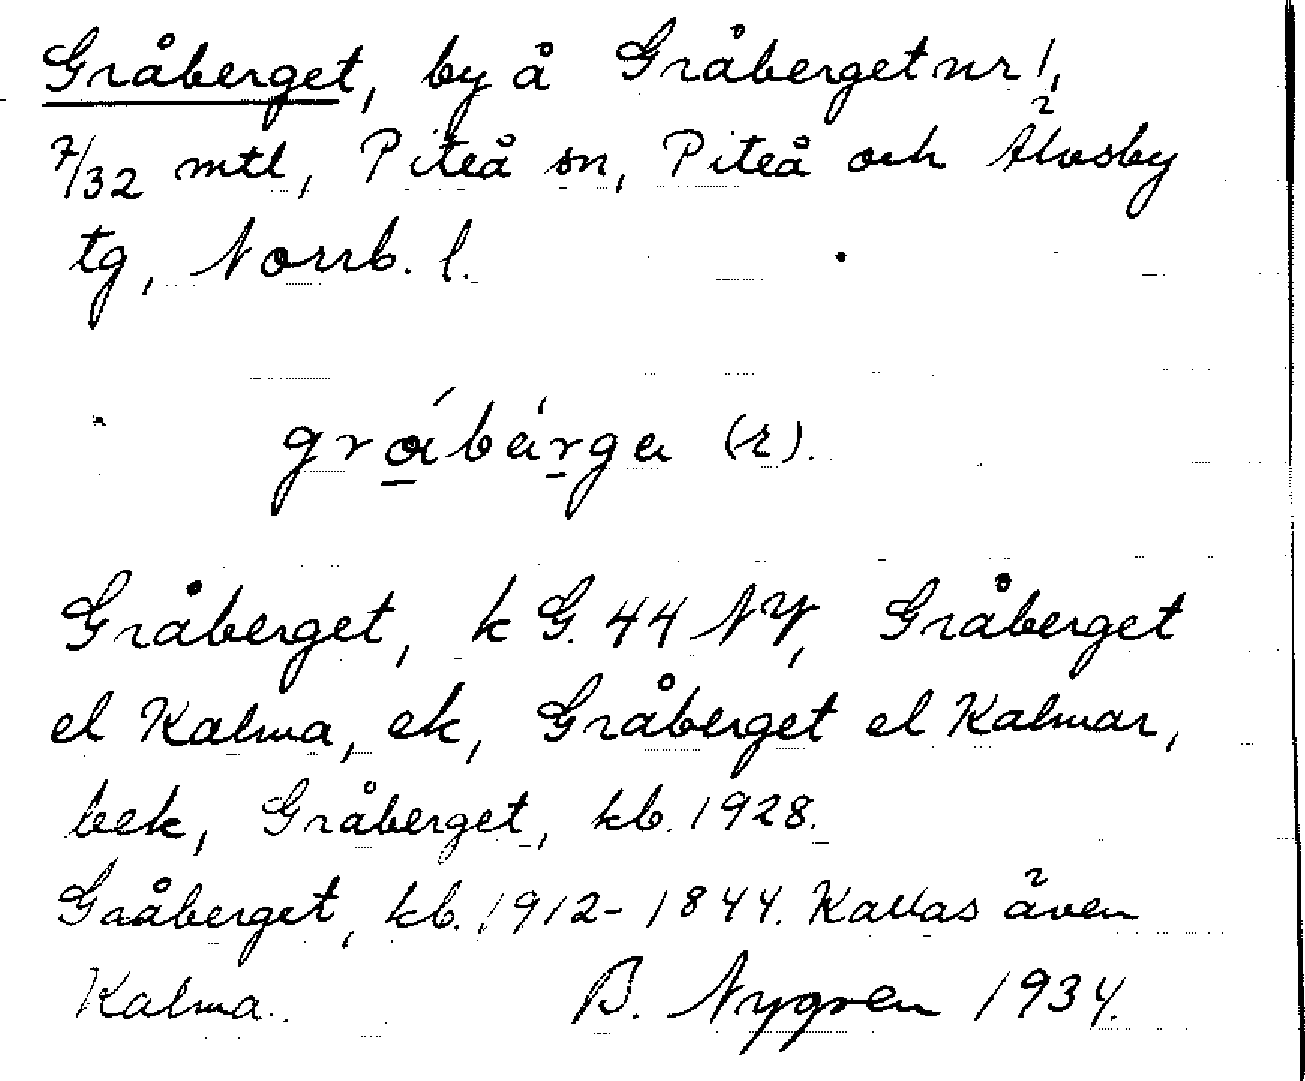 Gråberget, by å Gråberget nr 1,
7/32 mtl, Piteå sn, Piteå och Älvsby
tg, Norrb. l.
gråbárga (2).
Gråberget, k G. 44 NY, Gråberget
el Kalma, ek, Gråberget el Kalmar,
bek, Gråberget, kb. 1928.
Gaåberget, kb. 1912-1844. Kallas även
Kalma. B. Nygren 1934.